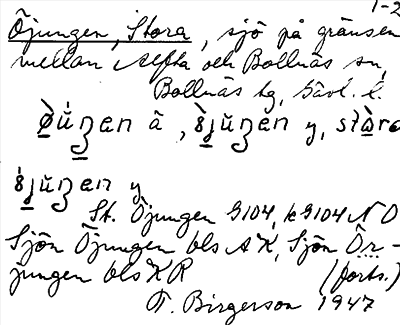 1-2
Öjungen, Stora, sjö på gränsen
mellan Alfta och Bollnäs sn,
Bollnäs tg, Gävl. l.
y, stora
y
St. Öjungen G104, k G104 NO
Sjön Öjungen bls AK, Sjön Ör-
jungen bls KR (forts.)
T. Birgerson 1947